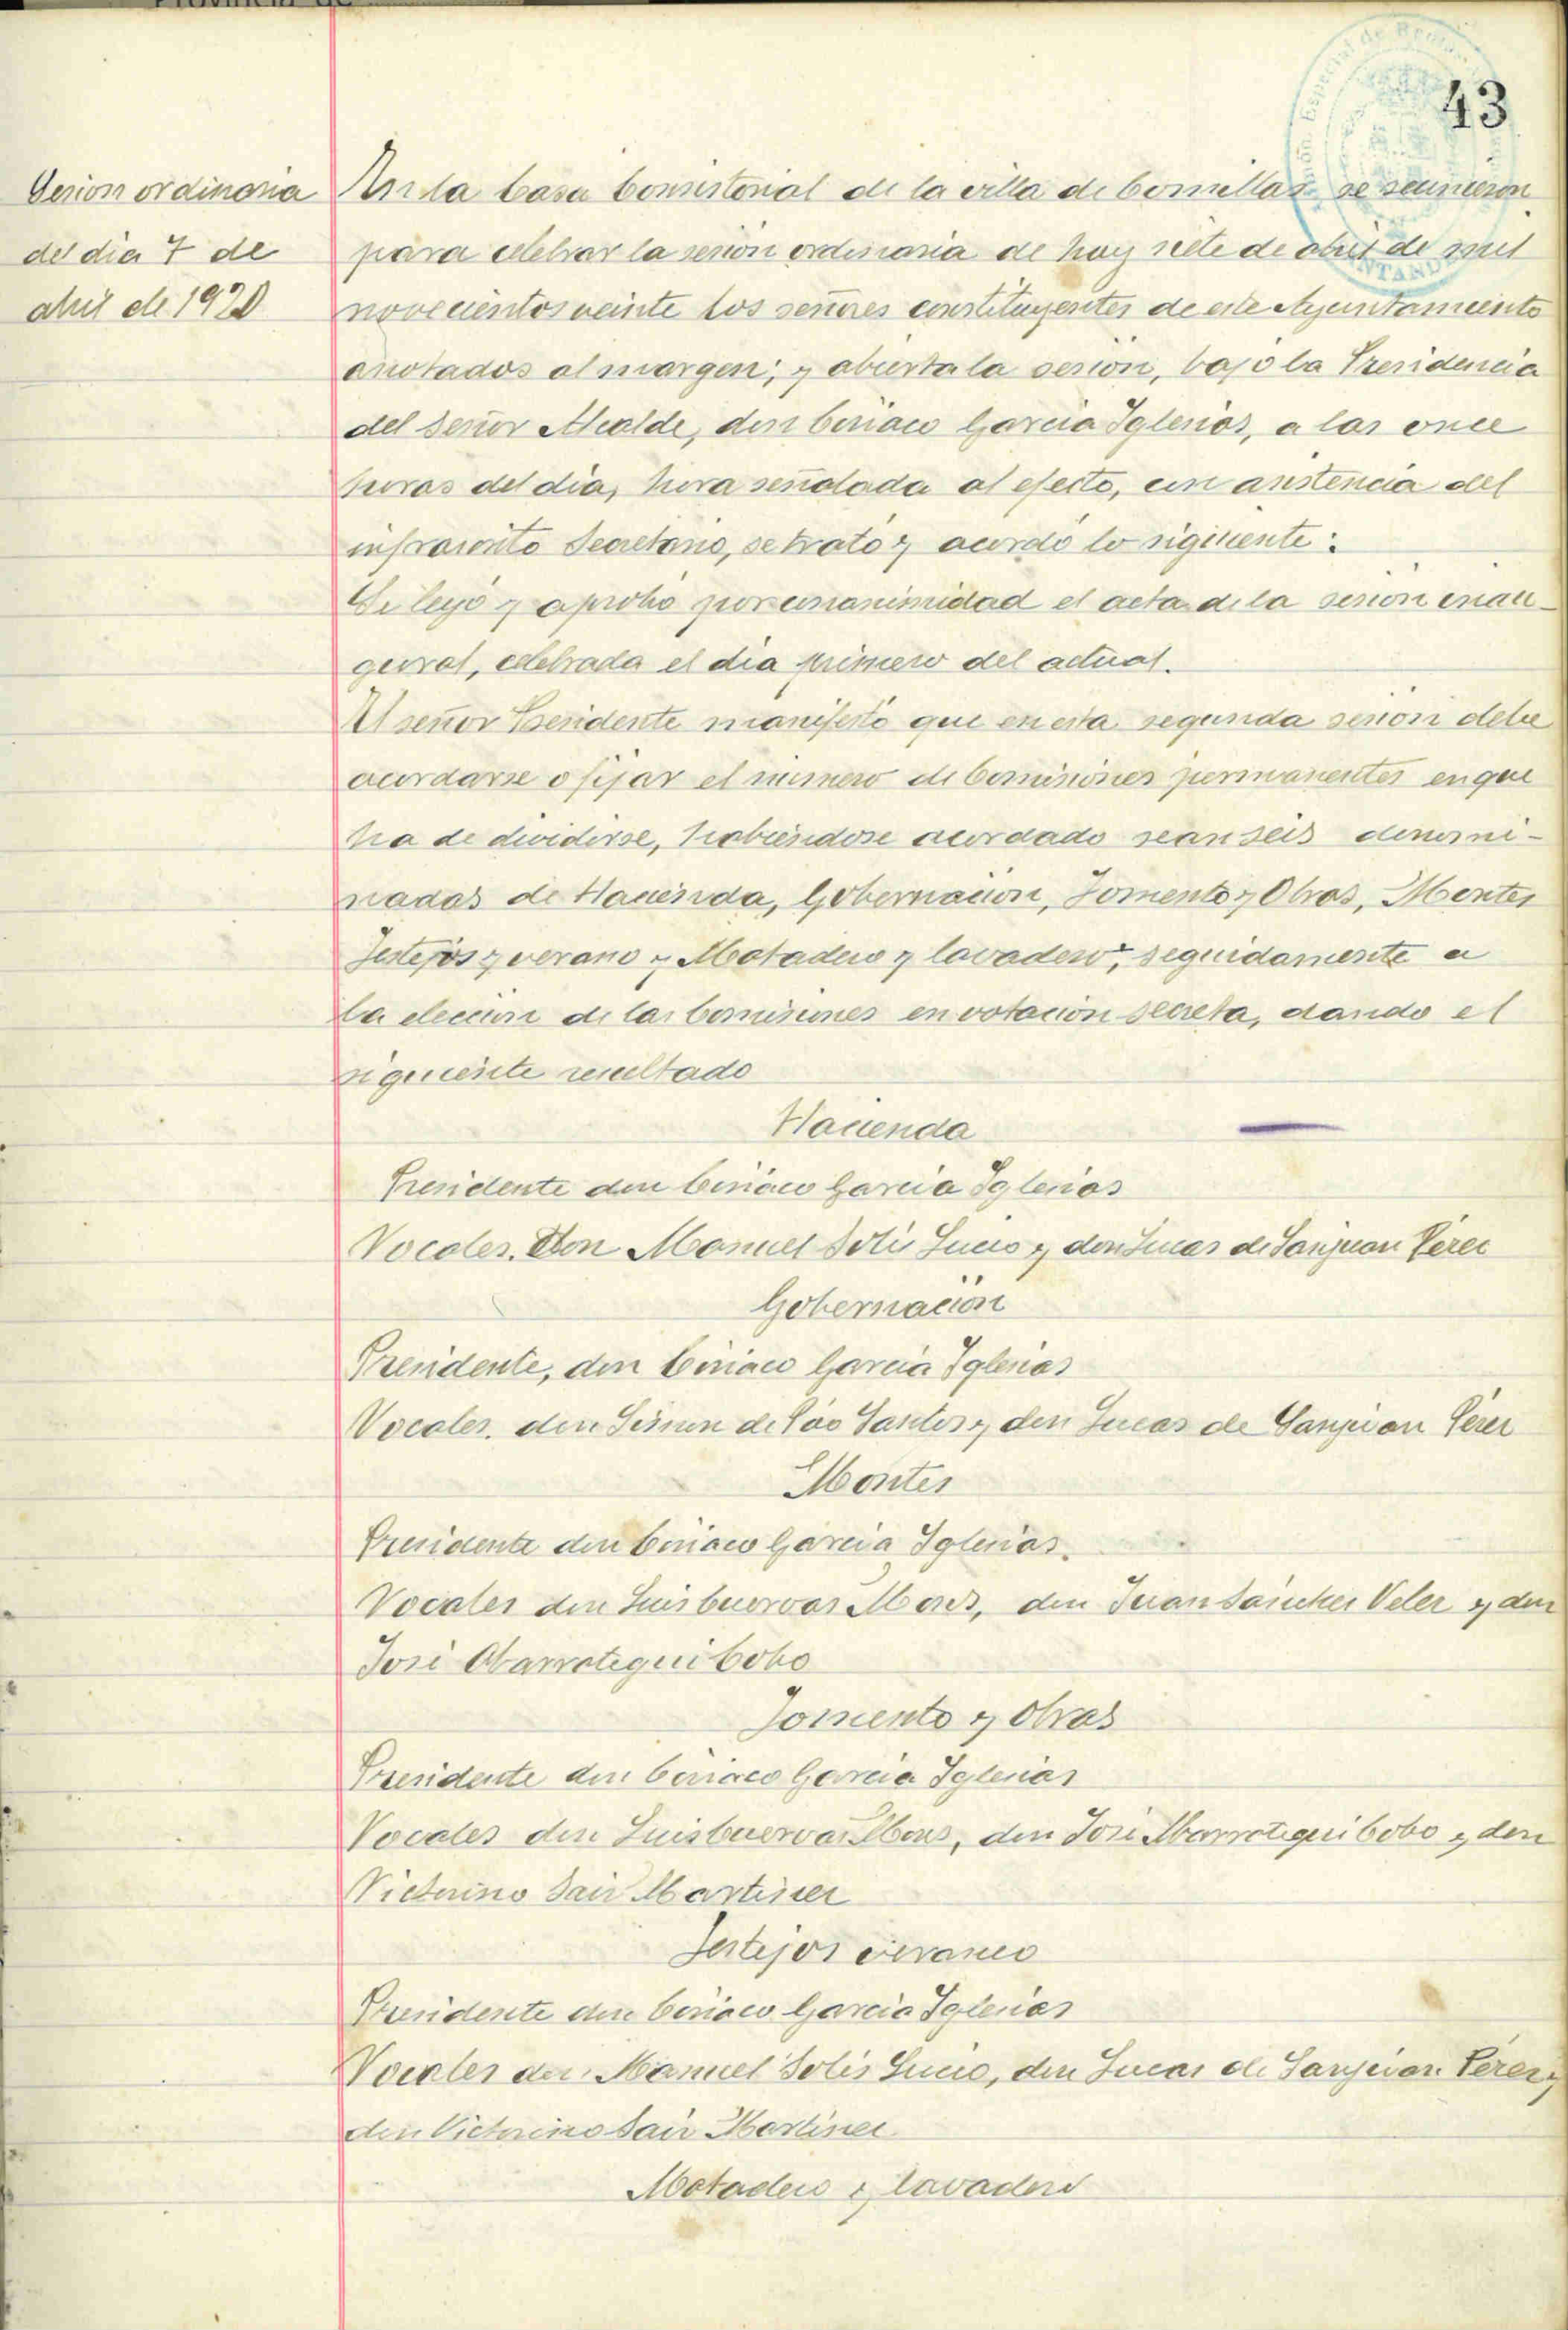 43
Sesion ordinaria
del dia 7 de
abril de 1920
En la Casa Consistorial de la villa de Comillas se reunieron
para celebrar la sesión ordinaria de hoy siete de abril de mil
novecientos veinte los señores constituyentes de este Ayuntamiento
anotados al margen; y abierta la sesion, bajo la Presidencia
del señor Alcalde, don Ciriaco Garcia Iglesias, a las once
horas del dia, hora señalada al efecto, con asistencia del
infrascrito Secretario, se trató y acordó lo siguiente:
Se leyó y aprobó por unanimidad el acta de la sesion inau-
gural, celebrada el dia primero del actual.
El señor Presidente manifestó que en esta segunda sesión debe
acordarse o fijar el número de Comisiones permanentes en que
ha de dividirse, habiéndose acordado sean seis denomi-
nadas de Hacienda, Gobernación, Fomento y Obras, Montes
Festejos y verano y Matadero y lavadero, seguidamente a
la elección de las Comisiones en votación secreta, dando el
siguiente resultado
Hacienda
Presidente don Ciriaco Garcia Iglesias
Vocales. Don Manuel Solis Lucio y don Lucas de Sanjuan Pérez
Gobernación
Presidente, don Ciriaco Garcia Iglesias
Vocales, don Simon de Santos y don Lucas de Sanjuan Pérez
Montes
Presidente don Ciriaco Garcia Iglesias.
Vocales don Luis Cuervas Mons, don Juan Sánchez Velez y don
José Abarrategui Cobo
Fomento y Obras
Presidente don Ciriaco Garcia Iglesias
Vocales don Luis Cuervas Mons, don José Abarrategui Cobo y don
Victorino Saiz Martinez
Festejos veraneo
Presidente don Ciriaco Garcia Iglesias
Vocales don Manuel Solis Lucio, don Lucas de Sanjuan Pérez y
don Victorino Saiz Martinez
Matadero y lavadero